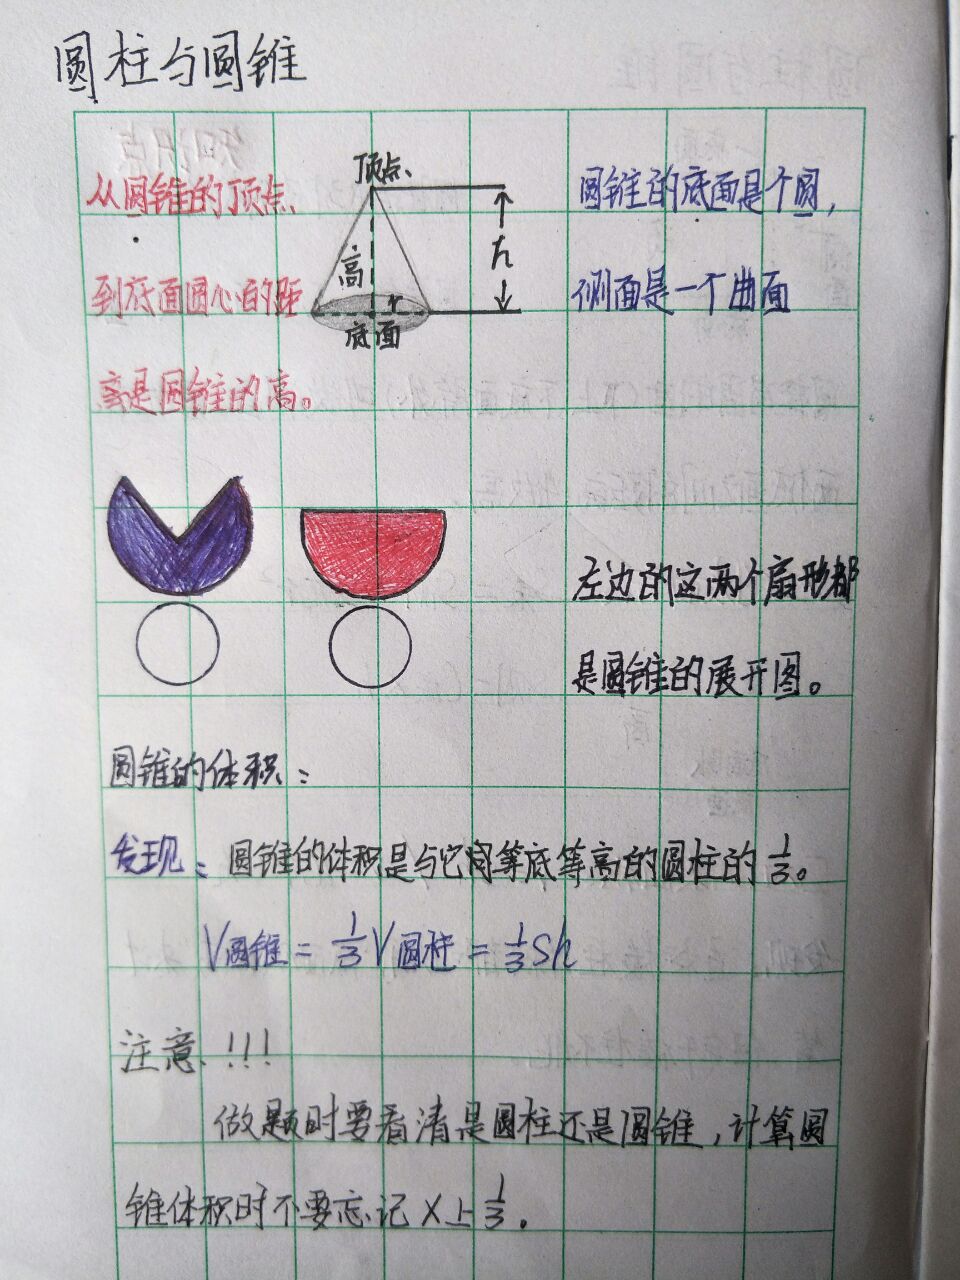 圆柱与圆锥
从圆锥的顶点
到底面圆心的距
离是圆锥的高。
顶点
高
h
r
底面
圆锥的底面是个圆,
侧面是一个曲面
左边的这两个扇形都
是圆锥的展开图。
圆锥的体积:
发现: 圆锥的体积是与它同等底等高的圆柱的1/3。
V圆锥=1/3V圆柱=1/3Sh
注意!!!
做题时要看清是圆柱还是圆锥,计算圆
锥体积时不要忘记×上1/3。